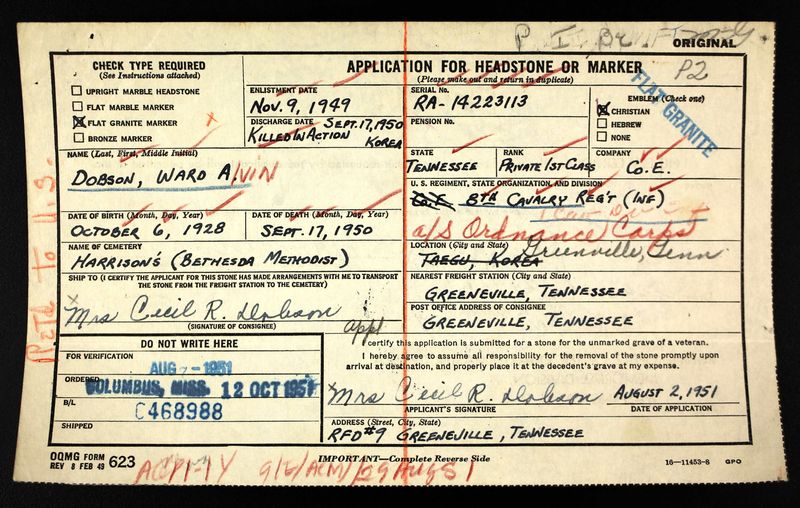 ORIGINAL
P2
CHECK TYPE REQUIRED
(See Instructions attached)
UPRIGHT MARBLE HEADSTONE
FLAT MARBLE MARKER
FLAT GRANITE MARKER
BRONZE MARKER
APPLICATION FOR HEADSTONE OR MARKER
(Please make out and return in duplicate)
ENLISTMENT DATE
NOV. 9, 1949
DISCHARGE DATE SEPT. 17, 1950
KILLED IN ACTION KOREA
SERIAL No.
RA-14223113
PENSION No.
EMBLEM (Check one)
CHRISTIAN
HEBREW
NONE
FLAT GRANITE
NAME (Last, First, Middle Initial)
DOBSON, WARD ALVIN
STATE
TENNESSEE
RANK
PRIVATE 1ST CLASS
COMPANY
CO. E.
U. S. REGIMENT, STATE ORGANIZATION, AND DIVISION
Co. E 8TH CAVALRY REG'T (INF)
a/s Ordnance Corps
DATE OF BIRTH (Month, Day, Year)
OCTOBER 6, 1928
DATE OF DEATH (Month, Day, Year)
SEPT. 17, 1950
NAME OF CEMETERY
HARRISON'S (BETHESDA METHODIST)
LOCATION (City and State)
TAEGU, KOREA Greenville, Tenn
SHIP TO (I CERTIFY THE APPLICANT FOR THIS STONE HAS MADE ARRANGEMENTS WITH ME TO TRANSPORT
THE STONE FROM THE FREIGHT STATION TO THE CEMETERY)
x Mrs Cecil R. Dobson
(SIGNATURE OF CONSIGNEE)
NEAREST FREIGHT STATION (City and State)
GREENEVILLE, TENNESSEE
POST OFFICE ADDRESS OF CONSIGNEE
GREENEVILLE, TENNESSEE
appl
DO NOT WRITE HERE
FOR VERIFICATION
AUG 1951
ORDERED
COLUMBUS, MISS. 12 OCT 1951
B/L
C468988
SHIPPED
I certify this application is submitted for a stone for the unmarked grave of a veteran.
I hereby agree to assume all responsibility for the removal of the stone promptly upon
arrival at destination, and properly place it at the decedent's grave at my expense.
x Mrs Cecil R. Dobson AUGUST 2, 1951
APPLICANT'S SIGNATURE DATE OF APPLICATION
ADDRESS (Street, City, State)
RFD #9 GREENEVILLE, TENNESSEE
OQMG FORM
REV 8 FEB 49 623
IMPORTANT—Complete Reverse Side
16—11453-8 GPO